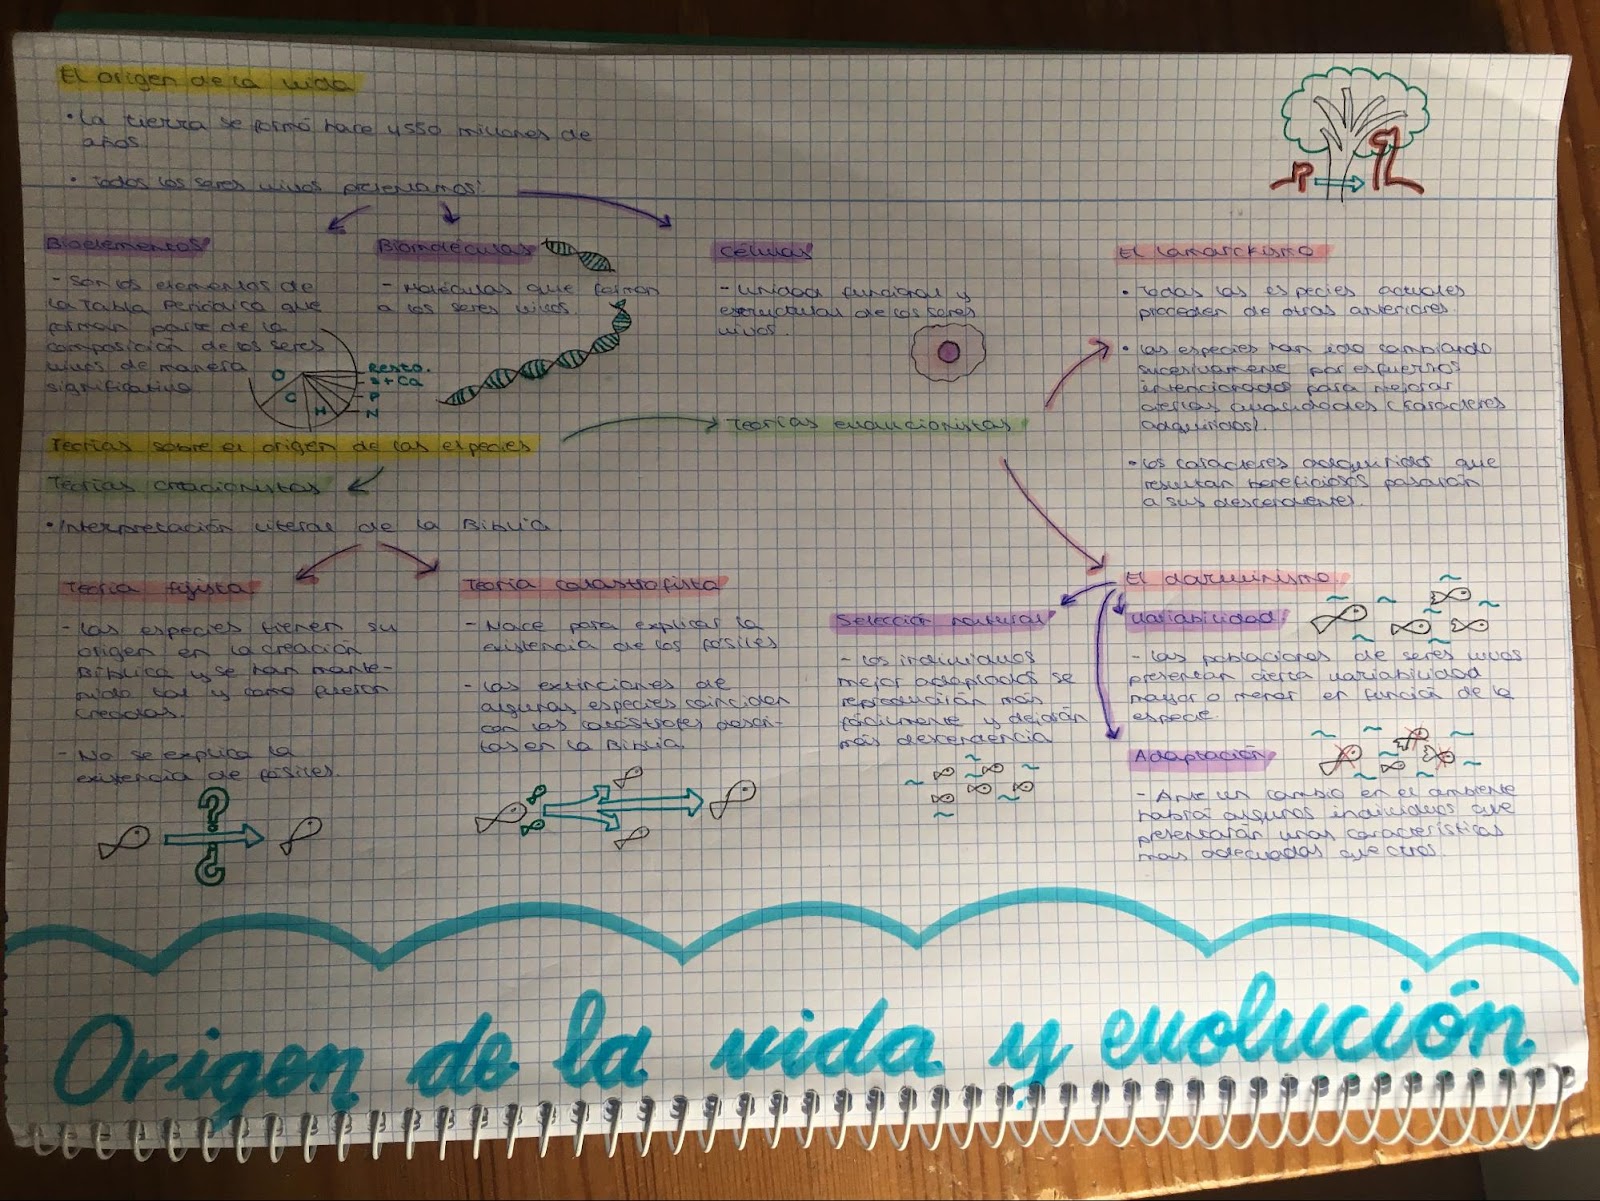 El origen de la vida
• La tierra se formó hace 4550 millones de
años.
• Todos los seres vivos presentamos:
Bioelementos
- Son los elementos de
la Tabla Periódica que
forman parte de la
composición de los seres
vivos de manera
significativa
O
C
H
Resto.
P
N
Biomoléculas
- Moléculas que forman
a los seres vivos.
Células
- Unidad funcional y
estructural de los seres
vivos.
Teorías sobre el origen de las especies
Teorías creacionistas
• Interpretación literal de la Biblia
Teoría fijista
- Las especies tienen su
origen en la creación
Bíblica y se han mante-
nido tal y como fueron
creadas.
- No se explica la
existencia de fósiles.
?
?
Teoría catastrofista
- Nace para explicar la
existencia de los fósiles
- Las extinciones de
algunas especies coinciden
con las catástrofes descri-
tas en la Biblia.
Teorías evolucionistas
El lamarckismo
• Todas las especies actuales
proceden de otras anteriores.
• Las especies han ido cambiando
sucesivamente por esfuerzos
intencionados para mejorar
ciertas cualidades (caracteres
adquiridos).
• Los caracteres adquiridos que
resultan beneficiosos pasarán
a sus descendientes.
El darwinismo
Selección natural
- Los individuos
mejor adaptados se
reproducirán más
fácilmente y dejarán
más descendencia
Variabilidad
- Las poblaciones de seres vivos
presentan cierta variabilidad
mayor o menor en función de la
especie.
Adaptación
- Ante un cambio en el ambiente
habrá algunos individuos que
presentarán unas características
más adecuadas que otros.
Origen de la vida y evolución